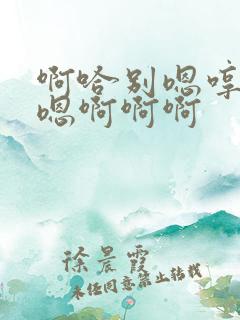 啊哈别嗯哼
嗯啊啊啊
徐晨霞
未经同意禁止转载